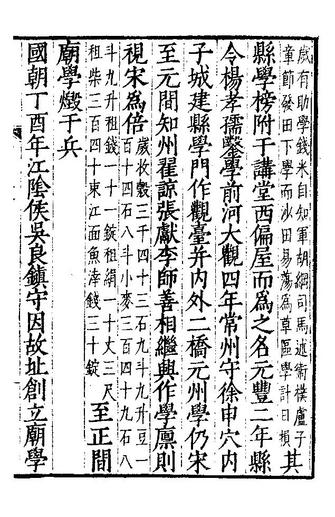 歲有助學錢米自知軍胡綱司馬述術樸盧子
章節發田下學而沙田易蕩為草區學計日損
其
縣學榜附于講堂西偏屋而為之名元豐二年縣
令楊孝孺鑿學前河大觀四年常州守徐申穴內
子城建縣學門作觀臺并內外二橋元州學仍宋
至元間知州翟諒張獻李師善相繼興作學廩則
視宋為倍
歲收穀三千四十三石九斗九升豆一
百十四石八斗小麥三百四十九石八
斗九升租錢一十一錠租絹一十丈三尺
租柴三百四十束江面魚滓錢三十錠
至正間
廟學燬于兵
國朝丁酉年江陰侯吳良鎮守因故址創立廟學